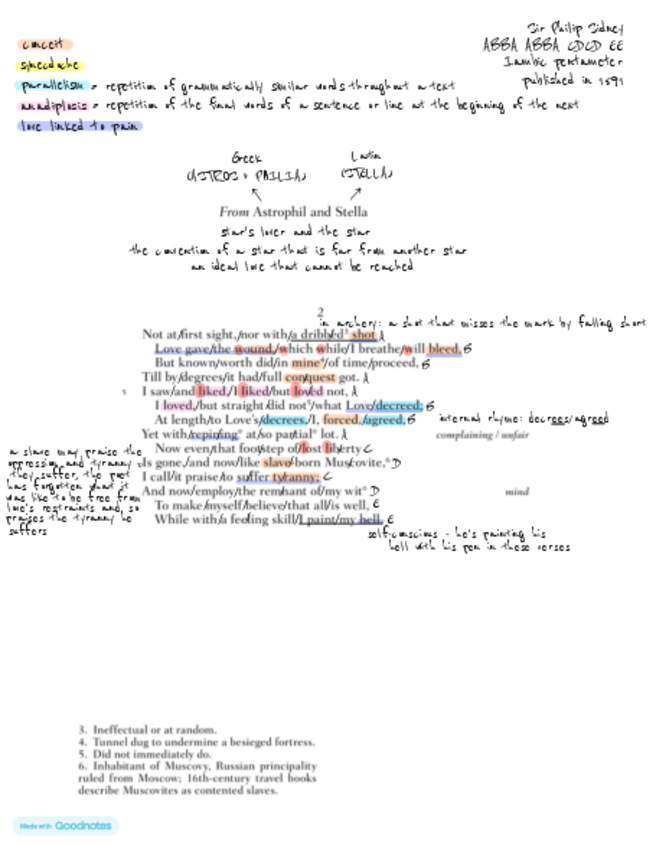 Sir Philip Sidney
conceit
ABBA ABBA CDCD EE
sinecdoche
Iambic pentameter
parallelism = repetition of grammatically similar words throughout a text
published in 1591
anadiplosis = repetition of the final words of a sentence or line at the beginning of the next
love linked to pain
Greek
Latin
(ASTROS + PHILIA)
(STELLA)
From Astrophil and Stella
star's lover and the star
the convention of a star that is far from another star
an ideal love that cannot be reached
2
in archery: a shot that misses the mark by falling short
Not at/first sight,/nor with/a dribbed³ shot A
Love gave/the wound,/which while/I breathe/will bleed, B
But known/worth did/in mine⁴/of time/proceed, B
Till by/degrees/it had/full conquest got. A
5 I saw/and liked,/I liked/but loved not, A
I loved,/but straight/did not⁵/what Love/decreed; B
At length/to Love's/decrees,/I, forced,/agreed, B internal rhyme: decrees/agreed
Yet with/repining° at/so partial° lot. A complaining / unfair
Now even/that footstep of/lost liberty C
Is gone,/and now/like slave-born Muscovite,⁶ D
I call/it praise/to suffer tyranny; C
And now/employ/the remnant of/my wit° D mind
To make/myself/believe/that all/is well, E
While with/a feeling skill/I paint/my hell. E
a slave may praise the
oppression and tyranny
they suffer, the poet
has forgotten what it
was like to be free from
love's restraints and, so
praises the tyranny he
suffers
self-conscious - he's painting his
hell with his pen in these verses
3. Ineffectual or at random.
4. Tunnel dug to undermine a besieged fortress.
5. Did not immediately do.
6. Inhabitant of Muscovy, Russian principality
ruled from Moscow; 16th-century travel books
describe Muscovites as contented slaves.
Made with Goodnotes